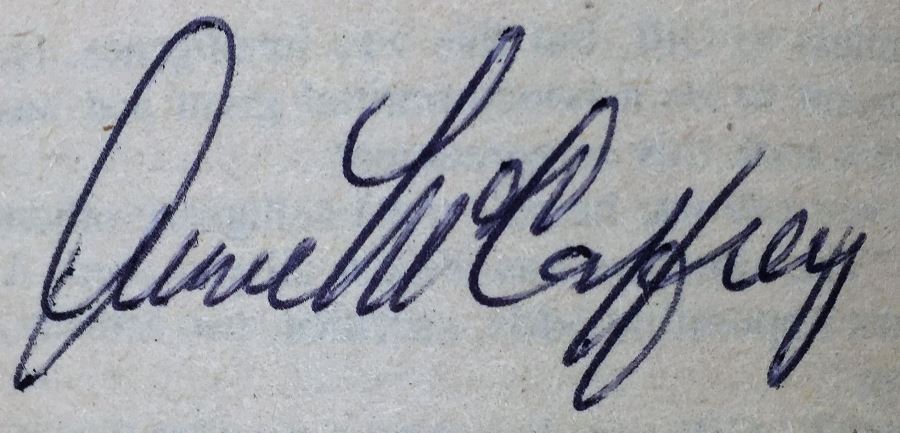 Anne McCaffrey